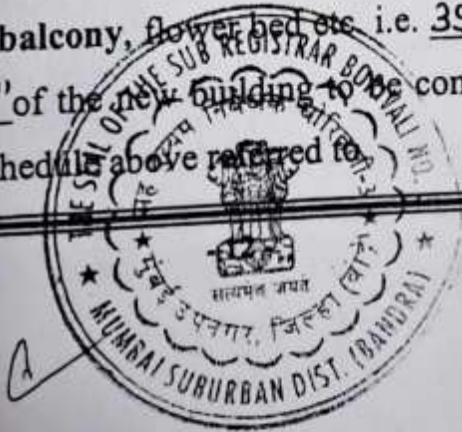 balcony, flower bed etc i.e.
of the new building to be con
hedule above referred to
THE SEAL OF THE SUB REGISTRAR BORIVALI NO.
MUMBAI SUBURBAN DIST. (BANDRA)
सह दुय्यम निबंधक बोरिवली-३
मुंबई उपनगर, जिल्हा (बांद्रा)
सत्यमेव जयते